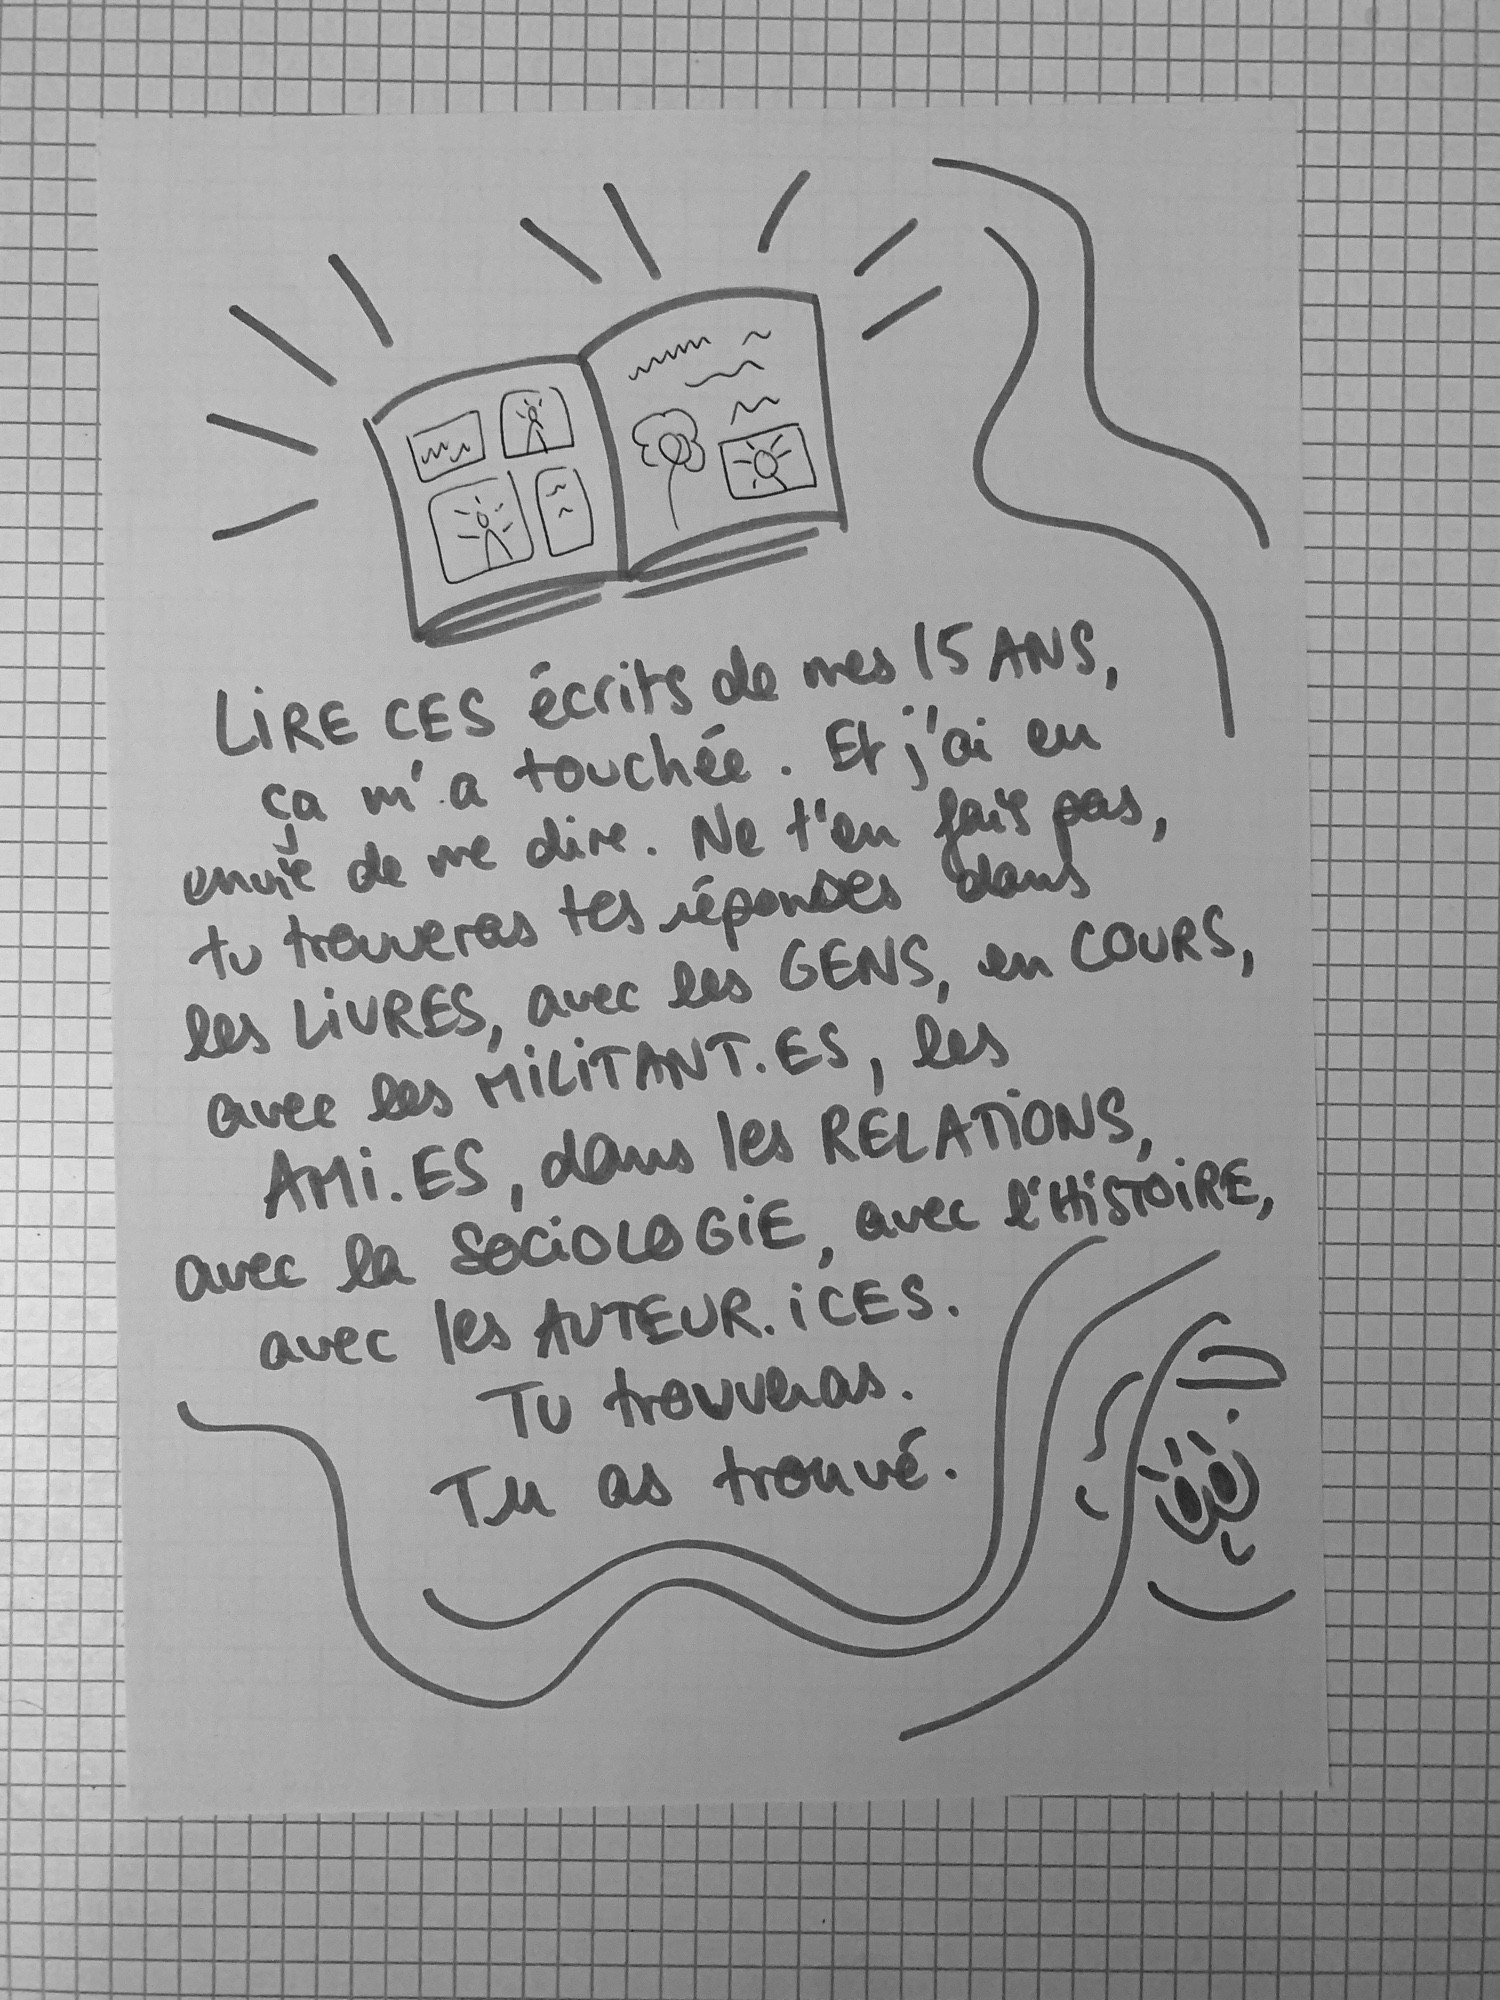 LiRE CES écrits de mes 15 ANS,
ça m'a touchée. Et j'ai eu
envie de me dire. Ne t'en fais pas,
tu trouveras tes réponses dans
les LiVRES, avec les GENS, en COURS,
avec les MiLiTANT.ES, les
AMi.ES, dans les RELATiONS,
avec la SOCiOLOGiE, avec l'HiSTOiRE,
avec les AUTEUR.iCES.
Tu trouveras.
Tu as trouvé.